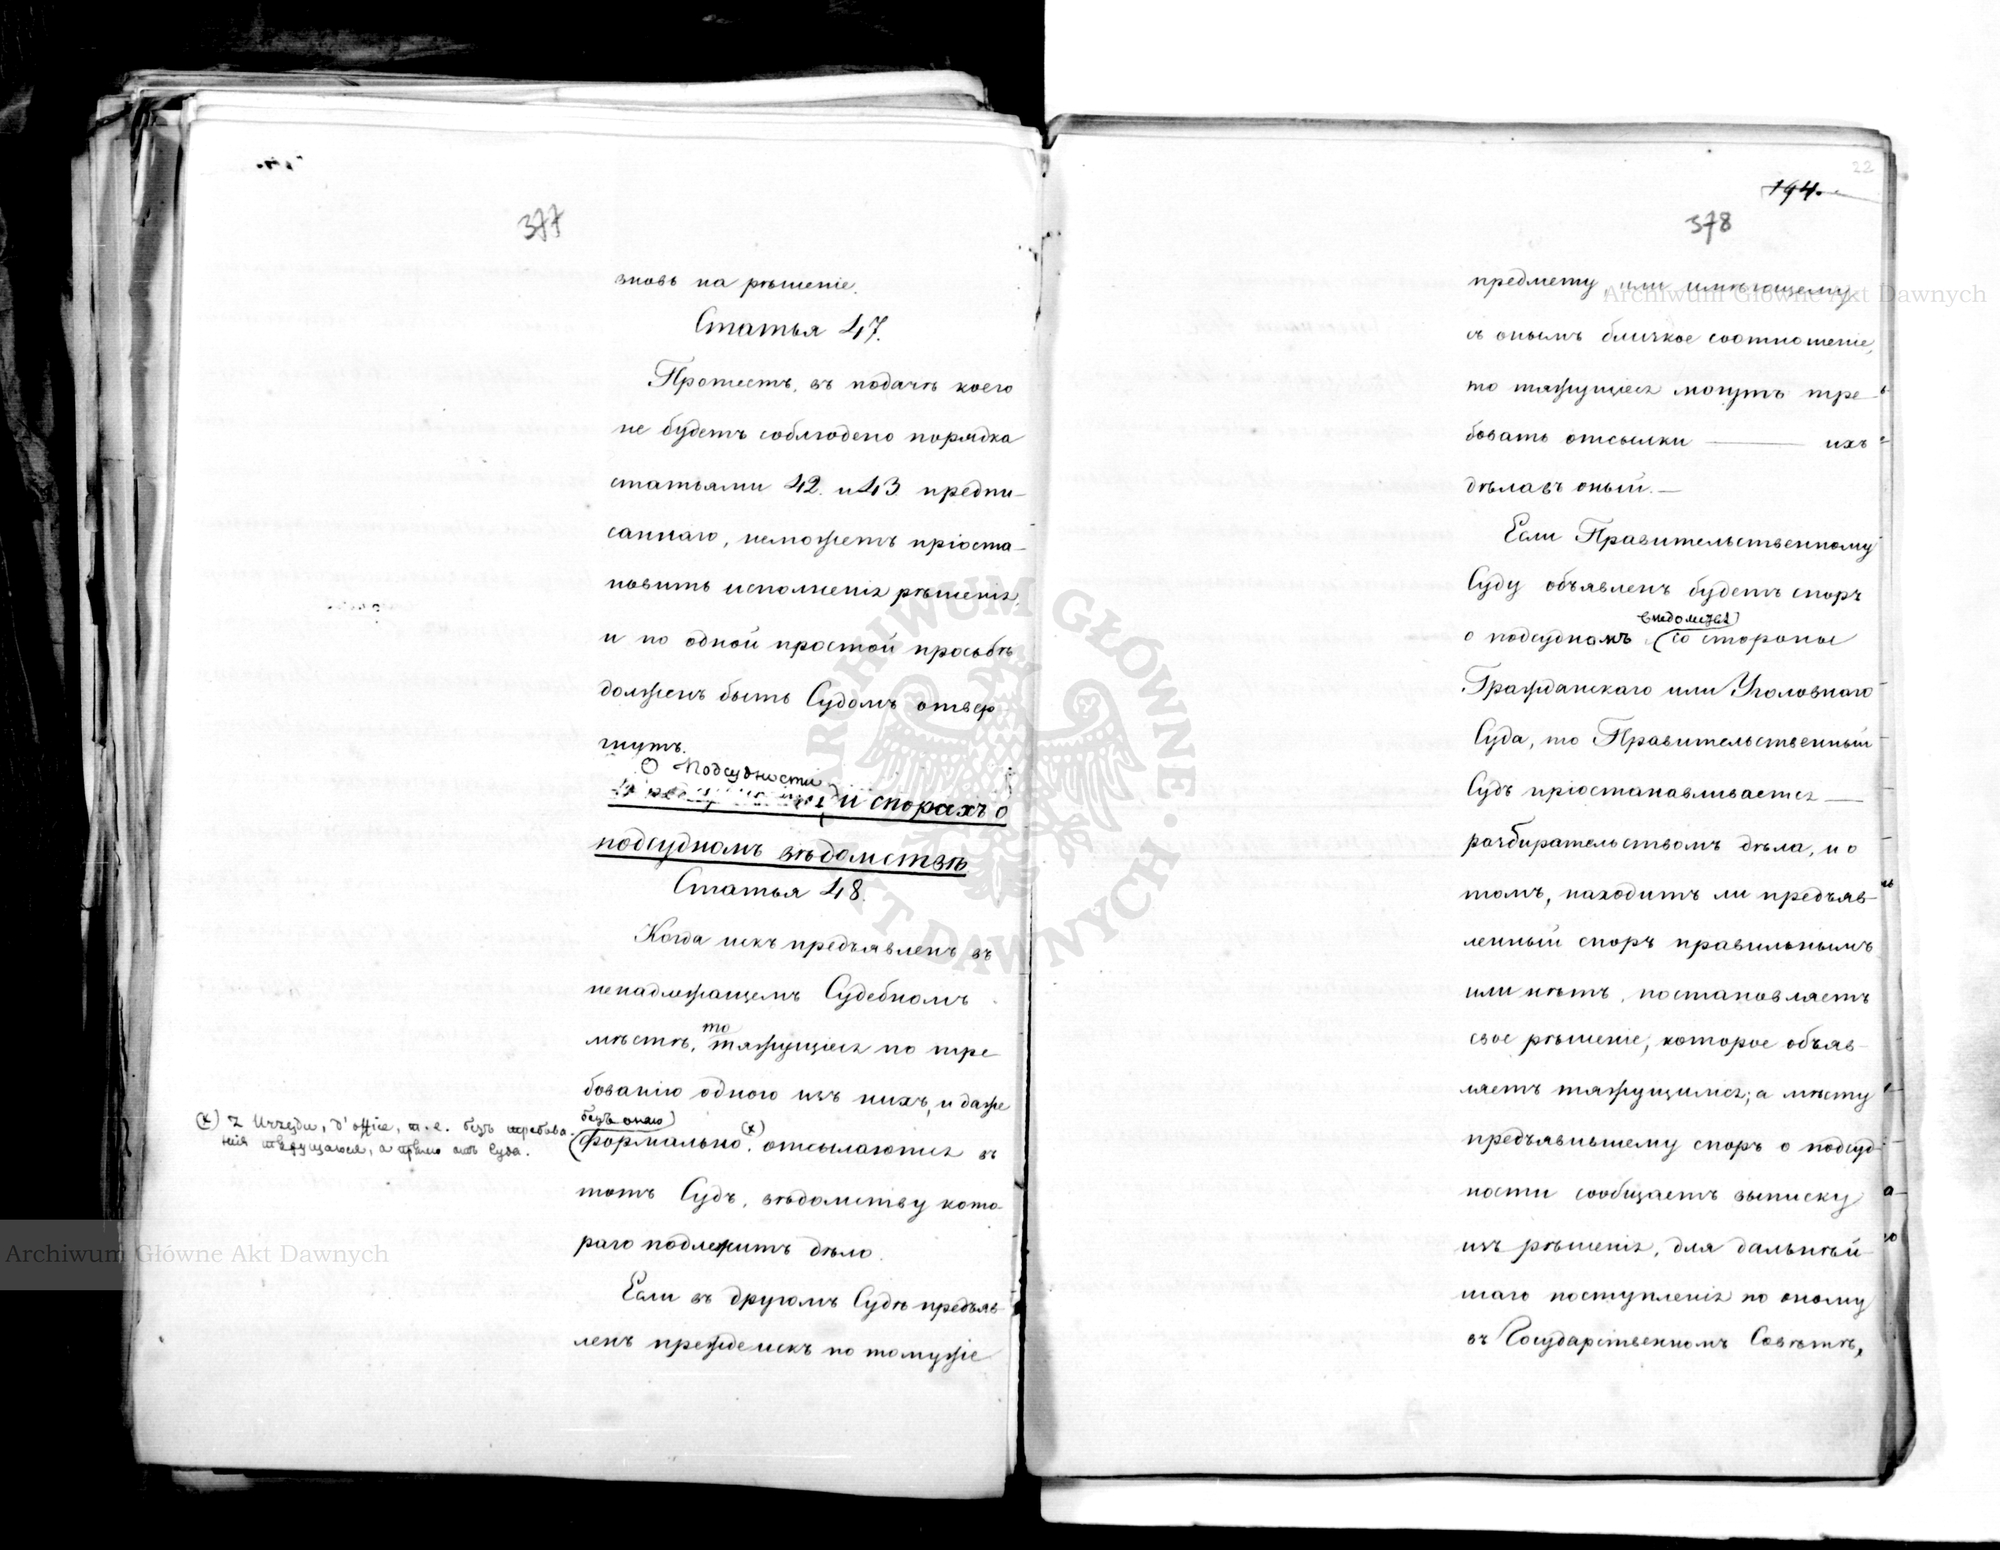 377
вновь на рѣшеніе.
Статья 47.
Протестъ, въ подачѣ коего
не будетъ соблюдено порядка
статьями 42. и 43 предпи-
саннаго, неможетъ пріоста-
новить исполненія рѣшенія,
и по одной простой прозьбѣ
долженъ быть Судомъ отвер
гнутъ.
О Подсудности
и спорахъ о
подсудномъ вѣдомствѣ.
Статья 48.
Когда искъ предъявленъ въ
ненадлежащемъ Судебномъ
то
мѣстѣ, тяжущіеся по тре
бованію одного изъ нихъ, и даже
безъ онаго
формально (x) отсылаются въ
(x) z Urzędu, d'office, т. е. безъ требова-
нія тяжущагося, а прямо отъ Суда.
тотъ Судъ, вѣдомству кото-
раго подлежитъ дѣло.
Если въ другомъ Судѣ предъяв-
ленъ прежде искъ по томуже
22
194.
378
предмету, или имѣющему
съ онымъ близкое соотношеніе,
то тяжущіеся могутъ тре-
бовать отсылки — ихъ
дѣла въ оный. —
Если Правительственному
Суду объявленъ будетъ споръ
вѣдомства
о подсудномъ со стороны
Гражданскаго или Уголовнаго
Суда, то Правительственный
Судъ пріостанавливается —
разбирательствомъ дѣла, и о
томъ, находитъ ли предъяв-
ленный споръ правильнымъ
или нѣтъ, постановляетъ
свое рѣшеніе, которое объяв-
ляетъ тяжущимся; а мѣсту
предъявившему споръ о подсуд-
ности сообщаетъ выписку
изъ рѣшенія, для дальнѣй-
шаго поступленія по оному
въ Государственномъ Совѣтѣ,
Archiwum Główne Akt Dawnych
Archiwum Główne Akt Dawnych
ARCHIWUM GŁÓWNE · AKT DAWNYCH ·